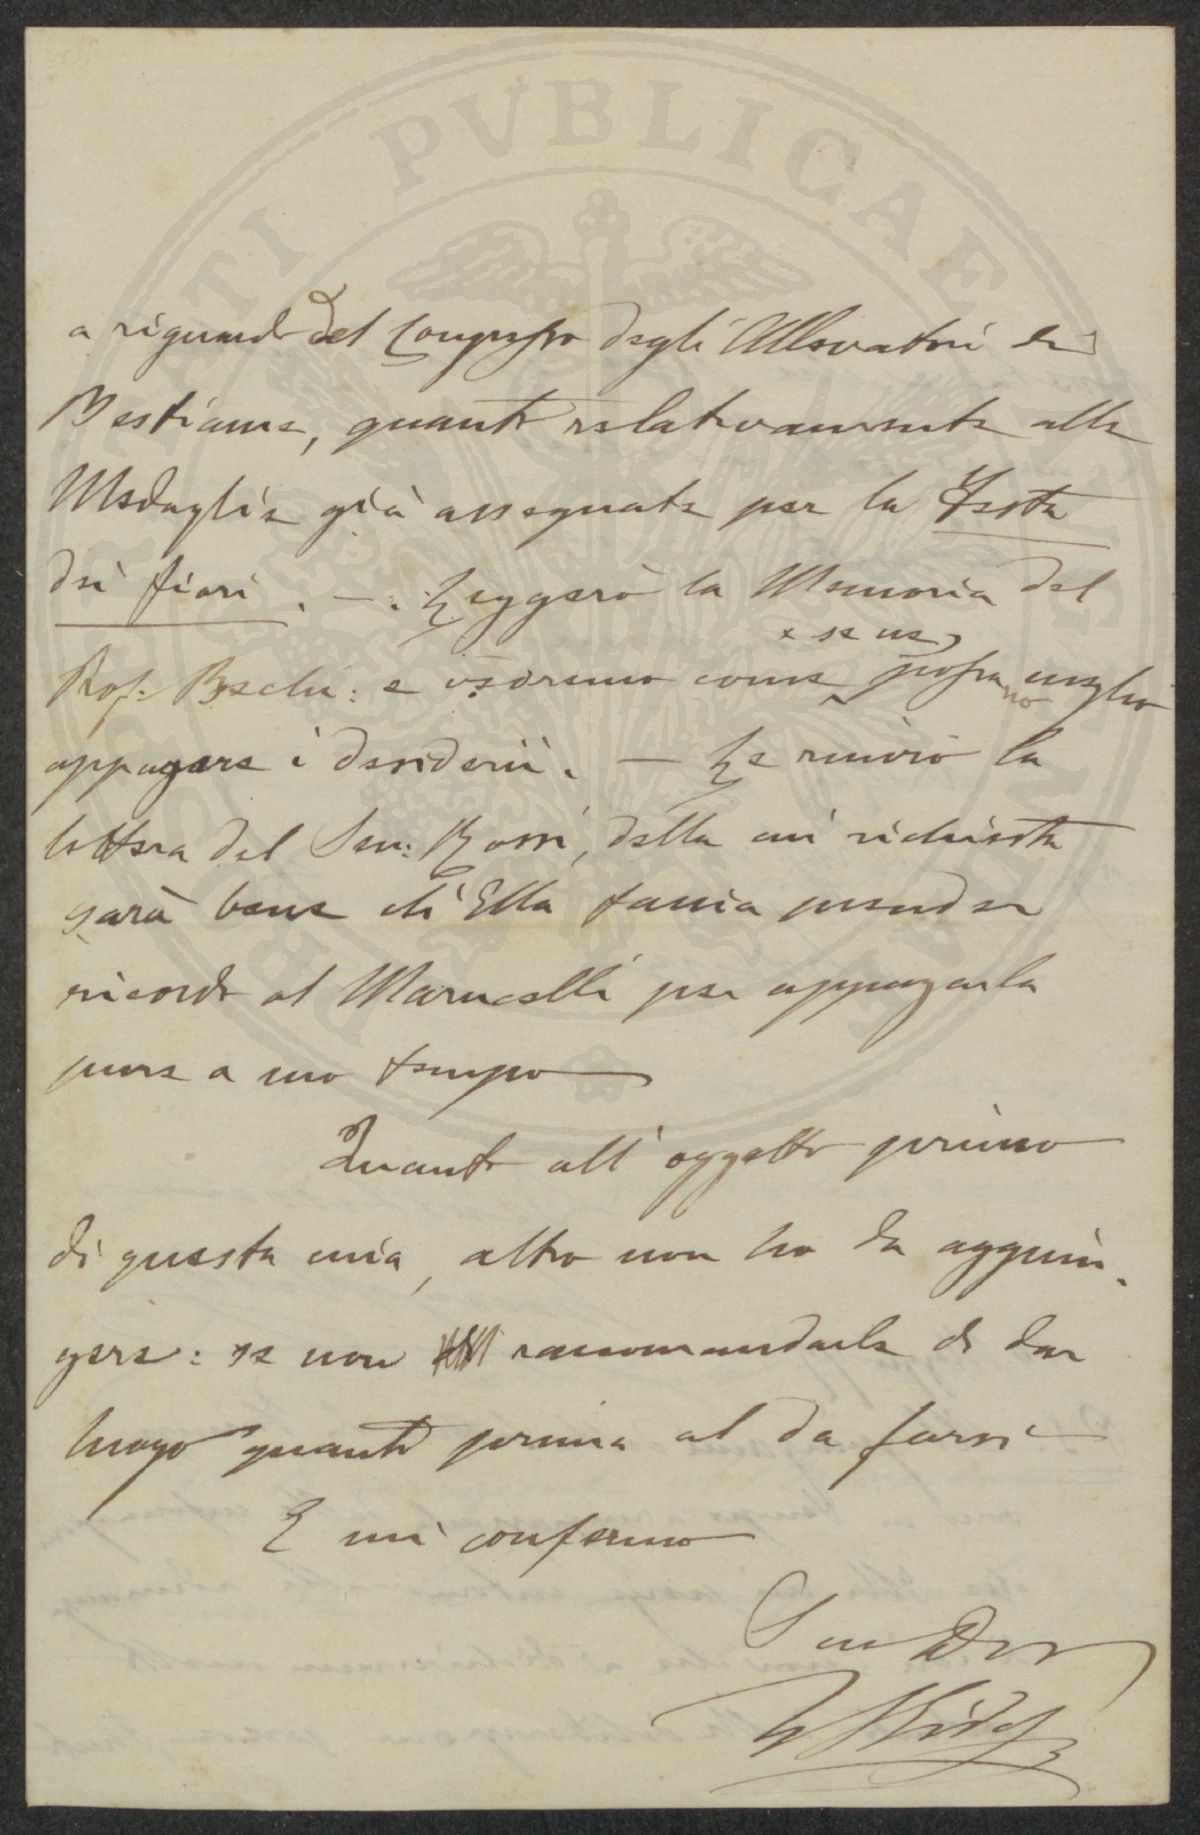 PVBLICAE
a riguardo del Congresso degli Allevatori di
Bestiame, quanto relativamente alle
Medaglie già assegnate per la Festa
dei fiori. — Leggerò la Memoria del
e se ne
Prof. Bechi: e vedremo come possano meglio
appagare i desiderii. — Le rinvio la
lettera del Sen: Rossi, della cui richiesta
sarà bene ch'Ella faccia prender
ricordo al Marucelli per appagarla
pure a suo tempo
Quanto all'oggetto primo
di questa mia, altro non ho da aggiun-
gere: se non raccomandarle di dar
luogo quanto prima al da farsi
E mi confermo
Suo Dev